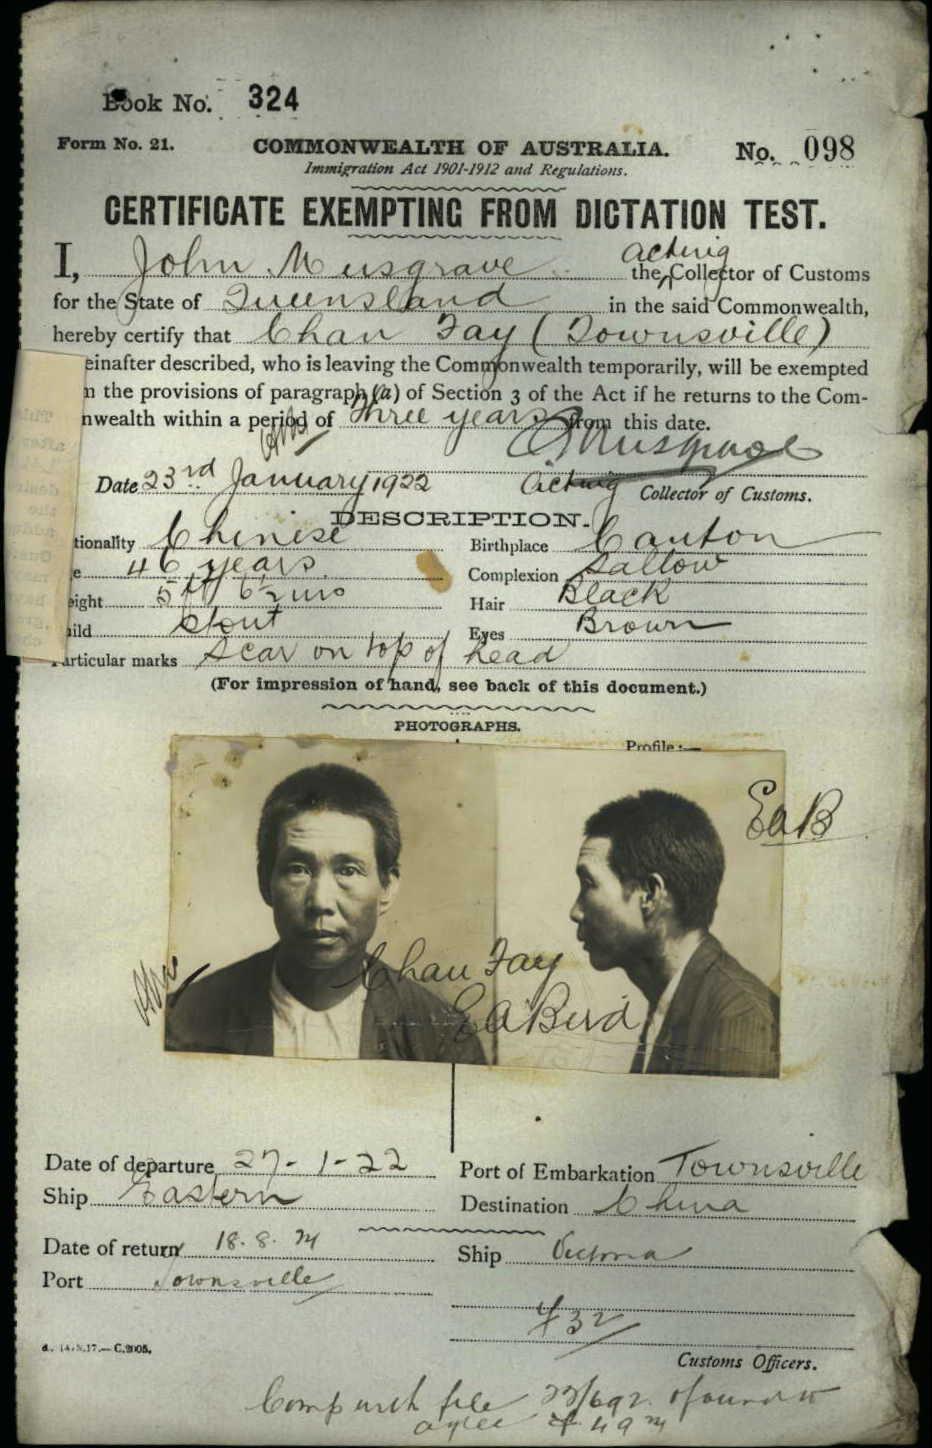 Book No. 324
Form No. 21. COMMONWEALTH OF AUSTRALIA. No. 098
Immigration Act 1901-1912 and Regulations.
CERTIFICATE EXEMPTING FROM DICTATION TEST.
I, John Musgrave acting the Collector of Customs
for the State of Queensland in the said Commonwealth,
hereby certify that Chan Fay (Townsville)
einafter described, who is leaving the Commonwealth temporarily, will be exempted
m the provisions of paragraph (a) of Section 3 of the Act if he returns to the Com-
nwealth within a period of three years from this date.
Musgrave
Date 23rd January 1922 Acting Collector of Customs.
DESCRIPTION.
tionality Chinese Birthplace Canton
e 46 years. Complexion Sallow
eight 5 ft 6½ ins Hair Black
ild Stout Eyes Brown
articular marks Scar on top of head
(For impression of hand, see back of this document.)
PHOTOGRAPHS.
Profile:—
EaB
Chan Fay
EABird
Date of departure 27-1-22 Port of Embarkation Townsville
Ship Eastern Destination China
Date of return 18.8.24 Ship Victoria
Port Townsville
432
Customs Officers.
C.2005.
Comp with file found to
agree